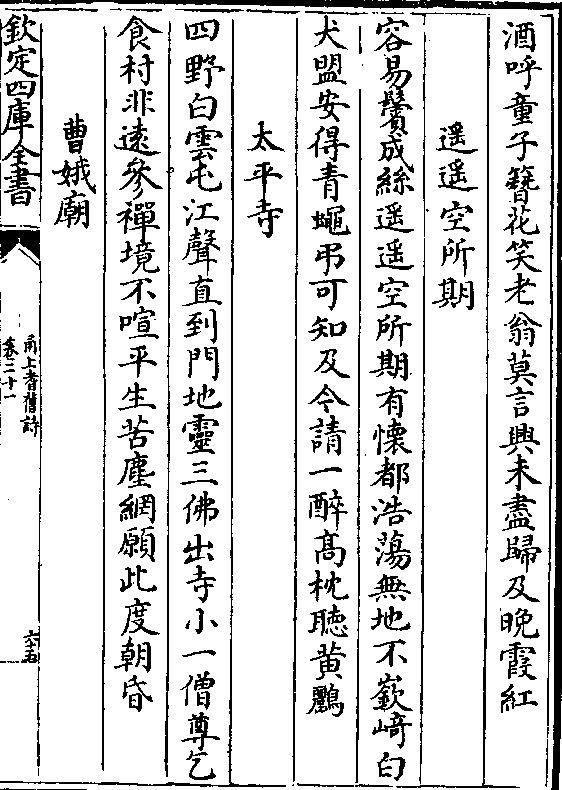 酒呼童子簪花笑老翁莫言興未盡歸及晚霞紅
遥遥空所期
容易鬢成絲遥遥空所期有懷都浩蕩無地不嶔﨑白
犬盟安得青蠅弔可知及今請一醉高枕聴黄鸝
太平寺
四野白雲屯江聲直到門地靈三佛出寺小一僧尊乞
食村非遠參禪境不喧平生苦塵網願此度朝昏
曹娥廟
欽定四庫全書
甬上耆舊詩
卷二十一
六五